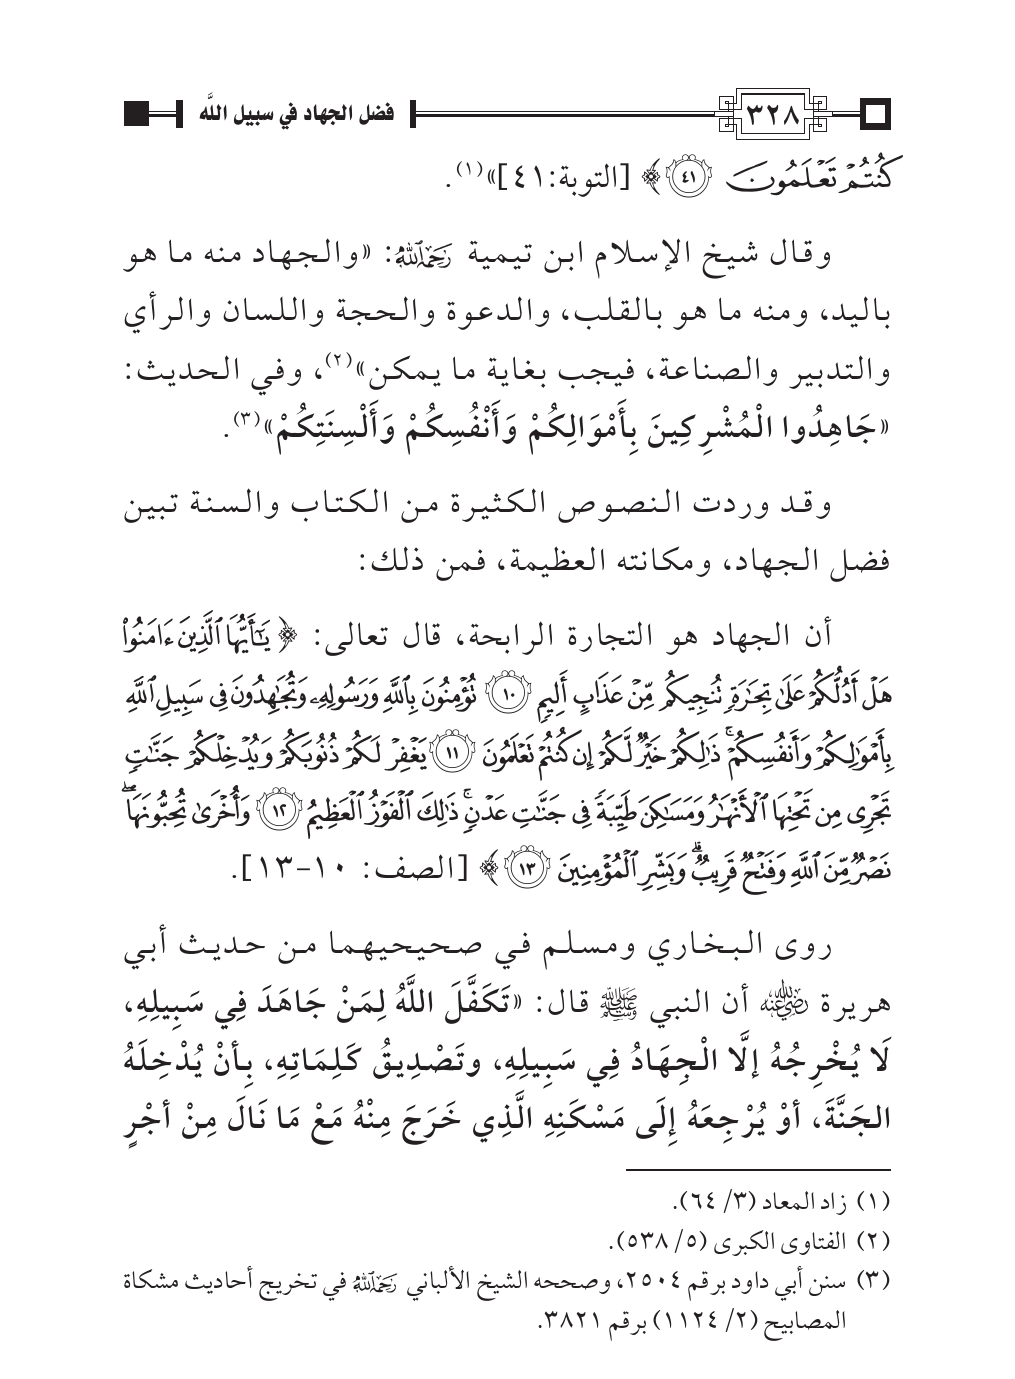 ٣٢٨ فضل الجهاد في سبيل الله
كُنتُمْ تَعْلَمُونَ ٤١ ﴾ [التوبة:٤١]»(١).
وقال شيخ الإسلام ابن تيمية رحمه الله: «والجهاد منه ما هو
باليد، ومنه ما هو بالقلب، والدعوة والحجة واللسان والرأي
والتدبير والصناعة، فيجب بغاية ما يمكن»(٢)، وفي الحديث:
«جَاهِدُوا الْمُشْرِكِينَ بِأَمْوَالِكُمْ وَأَنْفُسِكُمْ وَأَلْسِنَتِكُمْ»(٣).
وقد وردت النصوص الكثيرة من الكتاب والسنة تبين
فضل الجهاد، ومكانته العظيمة، فمن ذلك:
أن الجهاد هو التجارة الرابحة، قال تعالى: ﴿ يَٰٓأَيُّهَا ٱلَّذِينَ ءَامَنُوا۟
هَلْ أَدُلُّكُمْ عَلَىٰ تِجَٰرَةٍ تُنجِيكُم مِّنْ عَذَابٍ أَلِيمٍ ١٠ تُؤْمِنُونَ بِٱللَّهِ وَرَسُولِهِۦ وَتُجَٰهِدُونَ فِى سَبِيلِ ٱللَّهِ
بِأَمْوَٰلِكُمْ وَأَنفُسِكُمْ ۚ ذَٰلِكُمْ خَيْرٌ لَّكُمْ إِن كُنتُمْ تَعْلَمُونَ ١١ يَغْفِرْ لَكُمْ ذُنُوبَكُمْ وَيُدْخِلْكُمْ جَنَّٰتٍ
تَجْرِى مِن تَحْتِهَا ٱلْأَنْهَٰرُ وَمَسَٰكِنَ طَيِّبَةً فِى جَنَّٰتِ عَدْنٍ ۚ ذَٰلِكَ ٱلْفَوْزُ ٱلْعَظِيمُ ١٢ وَأُخْرَىٰ تُحِبُّونَهَا ۖ
نَصْرٌ مِّنَ ٱللَّهِ وَفَتْحٌ قَرِيبٌ ۗ وَبَشِّرِ ٱلْمُؤْمِنِينَ ١٣ ﴾ [الصف: ١٠-١٣].
روى البخاري ومسلم في صحيحيهما من حديث أبي
هريرة رضي الله عنه أن النبي ﷺ قال: «تَكَفَّلَ اللَّهُ لِمَنْ جَاهَدَ فِي سَبِيلِهِ،
لَا يُخْرِجُهُ إلَّا الْجِهَادُ فِي سَبِيلِهِ، وتَصْدِيقُ كَلِمَاتِهِ، بِأنْ يُدْخِلَهُ
الجَنَّةَ، أوْ يُرْجِعَهُ إِلَى مَسْكَنِهِ الَّذِي خَرَجَ مِنْهُ مَعْ مَا نَالَ مِنْ أجْرٍ
(١) زاد المعاد (٣/ ٦٤).
(٢) الفتاوى الكبرى (٥/ ٥٣٨).
(٣) سنن أبي داود برقم ٢٥٠٤، وصححه الشيخ الألباني رحمه الله في تخريج أحاديث مشكاة
المصابيح (٢/ ١١٢٤) برقم ٣٨٢١.